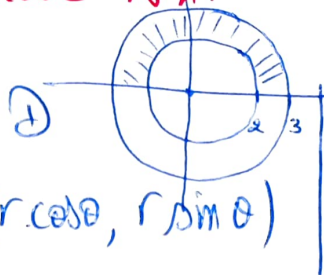 ① 2 3
r.cosθ, r sin θ)